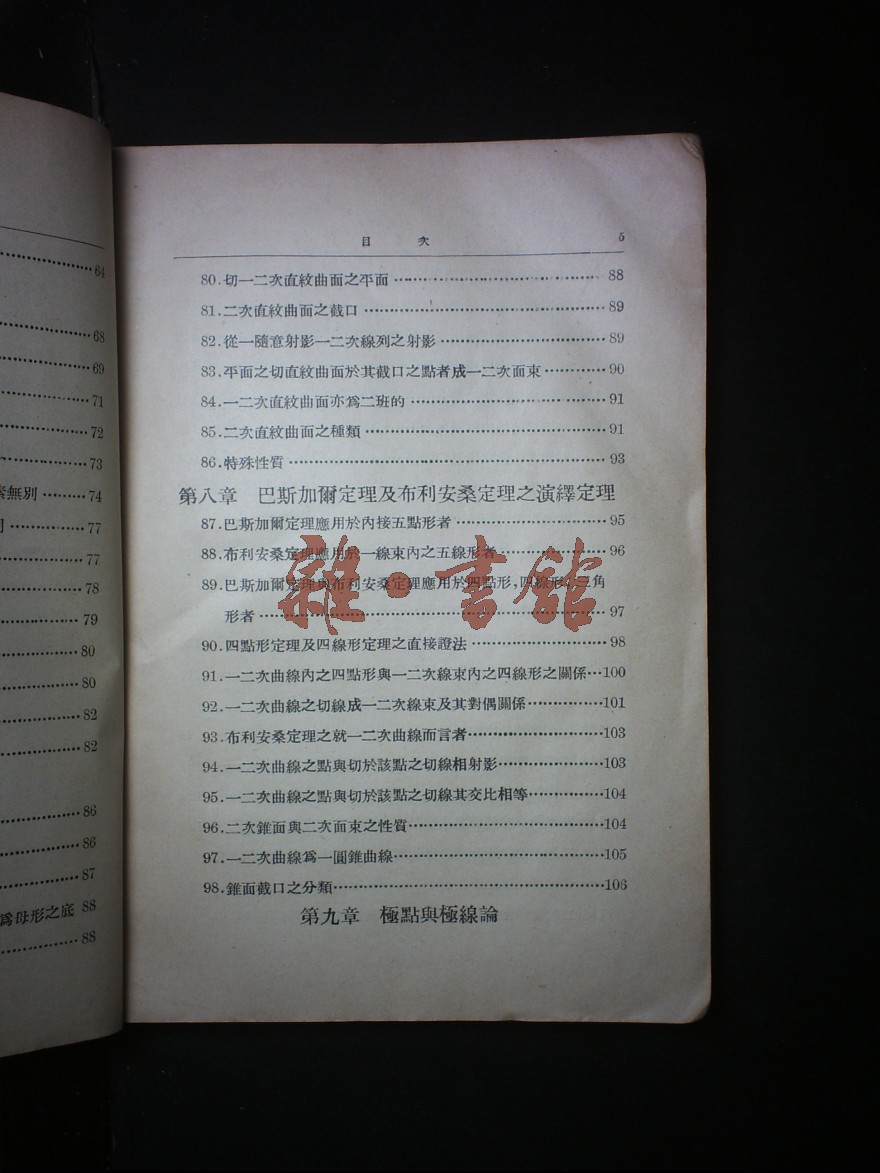 64
68
69
71
72
73
無別………74
77
77
78
79
80
80
82
82
86
86
87
爲母形之底 88
88
目 次 5
80.切一二次直紋曲面之平面………88
81.二次直紋曲面之截口………89
82.從一隨意射影一二次線列之射影………89
83.平面之切直紋曲面於其截口之點者成一二次面束………90
84.一二次直紋曲面亦爲二班的………91
85.二次直紋曲面之種類………91
86.特殊性質………93
第八章 巴斯加爾定理及布利安桑定理之演繹定理
87.巴斯加爾定理應用於內接五點形者………95
88.布利安桑定理應用於一線束內之五線形者………96
89.巴斯加爾定理與布利安桑定理應用於四點形,四線形,三角
形者………97
90.四點形定理及四線形定理之直接證法………98
91.一二次曲線內之四點形與一二次線束內之四線形之關係…100
92.一二次曲線之切線成一二次線束及其對偶關係………101
93.布利安桑定理之就一二次曲線而言者………103
94.一二次曲線之點與切於該點之切線相射影………103
95.一二次曲線之點與切於該點之切線其交比相等………104
96.二次錐面與二次面束之性質………104
97.一二次曲線爲一圓錐曲線………105
98.錐面截口之分類………106
第九章 極點與極線論
雜·書館